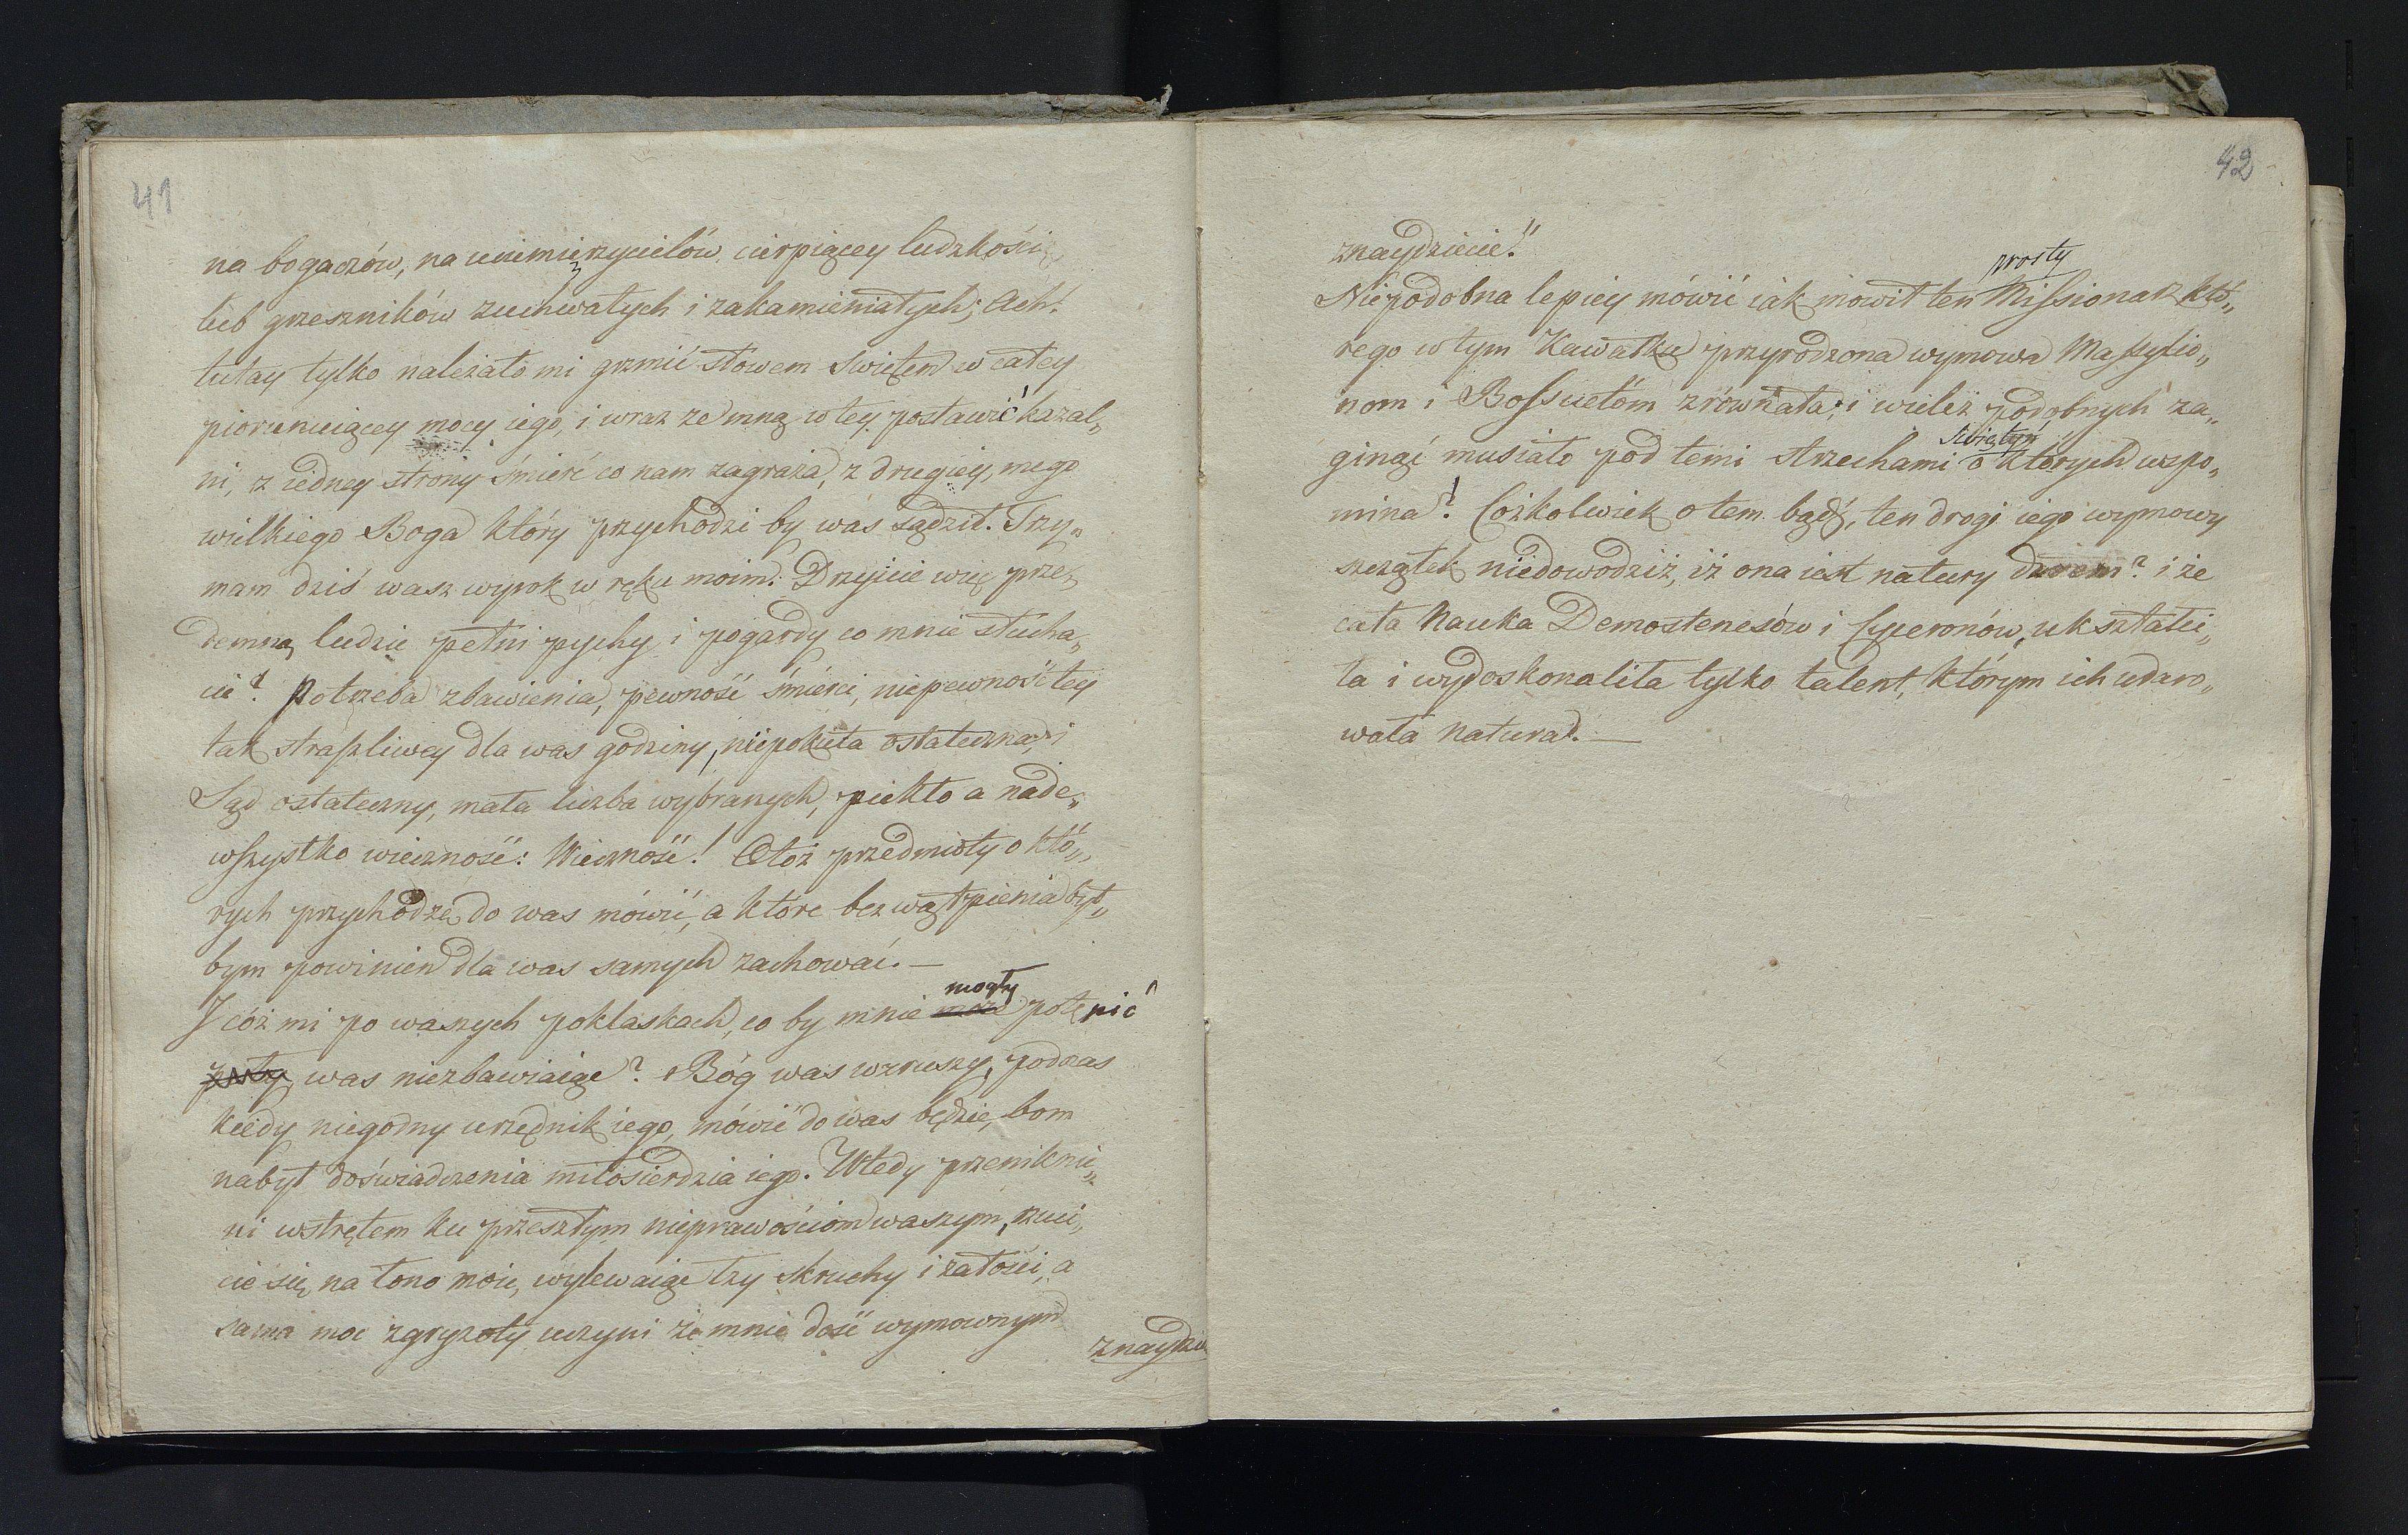 41
na bogaczów, na uciemięzycielów cierpiącey ludzkości
lub grzeszników zuchwałych i zakamieniałych; Ach!
tutay tylko należało mi grzmić słowem Swiętem w całey
piorunuiącey mocy iego, i wraz ze mną w tey postawić kazal„
ni, z iedney strony śmierć co nam zagraża, z drugiey, mego
wielkiego Boga który przychodzi by was sądził. Trzy„
mam dziś wasz wyrok w ręku moim! Drżyicie więc prze„
demną ludzie pełni pychy i pogardy co mnie słucha„
cie! Potrzeba zbawienia, pewność śmierci, niepewność tey
tak straszliwey dla was godziny, niepokuta ostateczna, i
Sąd ostateczny, mała liczba wybranych, piekło a nade„
wszystko wieczność: Wieczność! Otoż przedmioty o któ„
rych przychodzę do was mówić, a które bez wątpienia był„
bym powinien dla was samych zachować. —
mogły
I cóż mi po waszych poklaskach, co by mnie potępić
was niezbawiaiąc? Bóg was wzruszy, podczas
kiedy niegodny urzędnik iego, mówić do was będzie, bom
nabył doświadczenia miłosierdzia iego. Wtedy przeniknie„
ni wstrętem ku przeszłym nieprawościom waszym, rzuci„
cie się na łono moie, wylewaiąc łzy skruchy i żałości, a
sama moc zgryzoty uczyni że mnie dość wymownym
znaydzie
42
znaydziecie!"
prosty
Niepodobna lepiey mówić iak mowił ten Missionarz któ„
rego w tym Kawałku przyrodzona wymowa Massylio„
nom i Bossuetóm zrównała; i wieleż podobnych za„
Świątyń
ginąć musiało pod temi strzechami o których wspo„
mina! Cożkolwiek o tem bądź, ten drogi iego wymowy
szczątek niedowodziż, iż ona iest natury dziełem? i że
cała Nauka Demostenesów i Cyceronów, ukształci„
ła i wydoskonaliła tylko talent, którym ich udaro„
wała natura. —